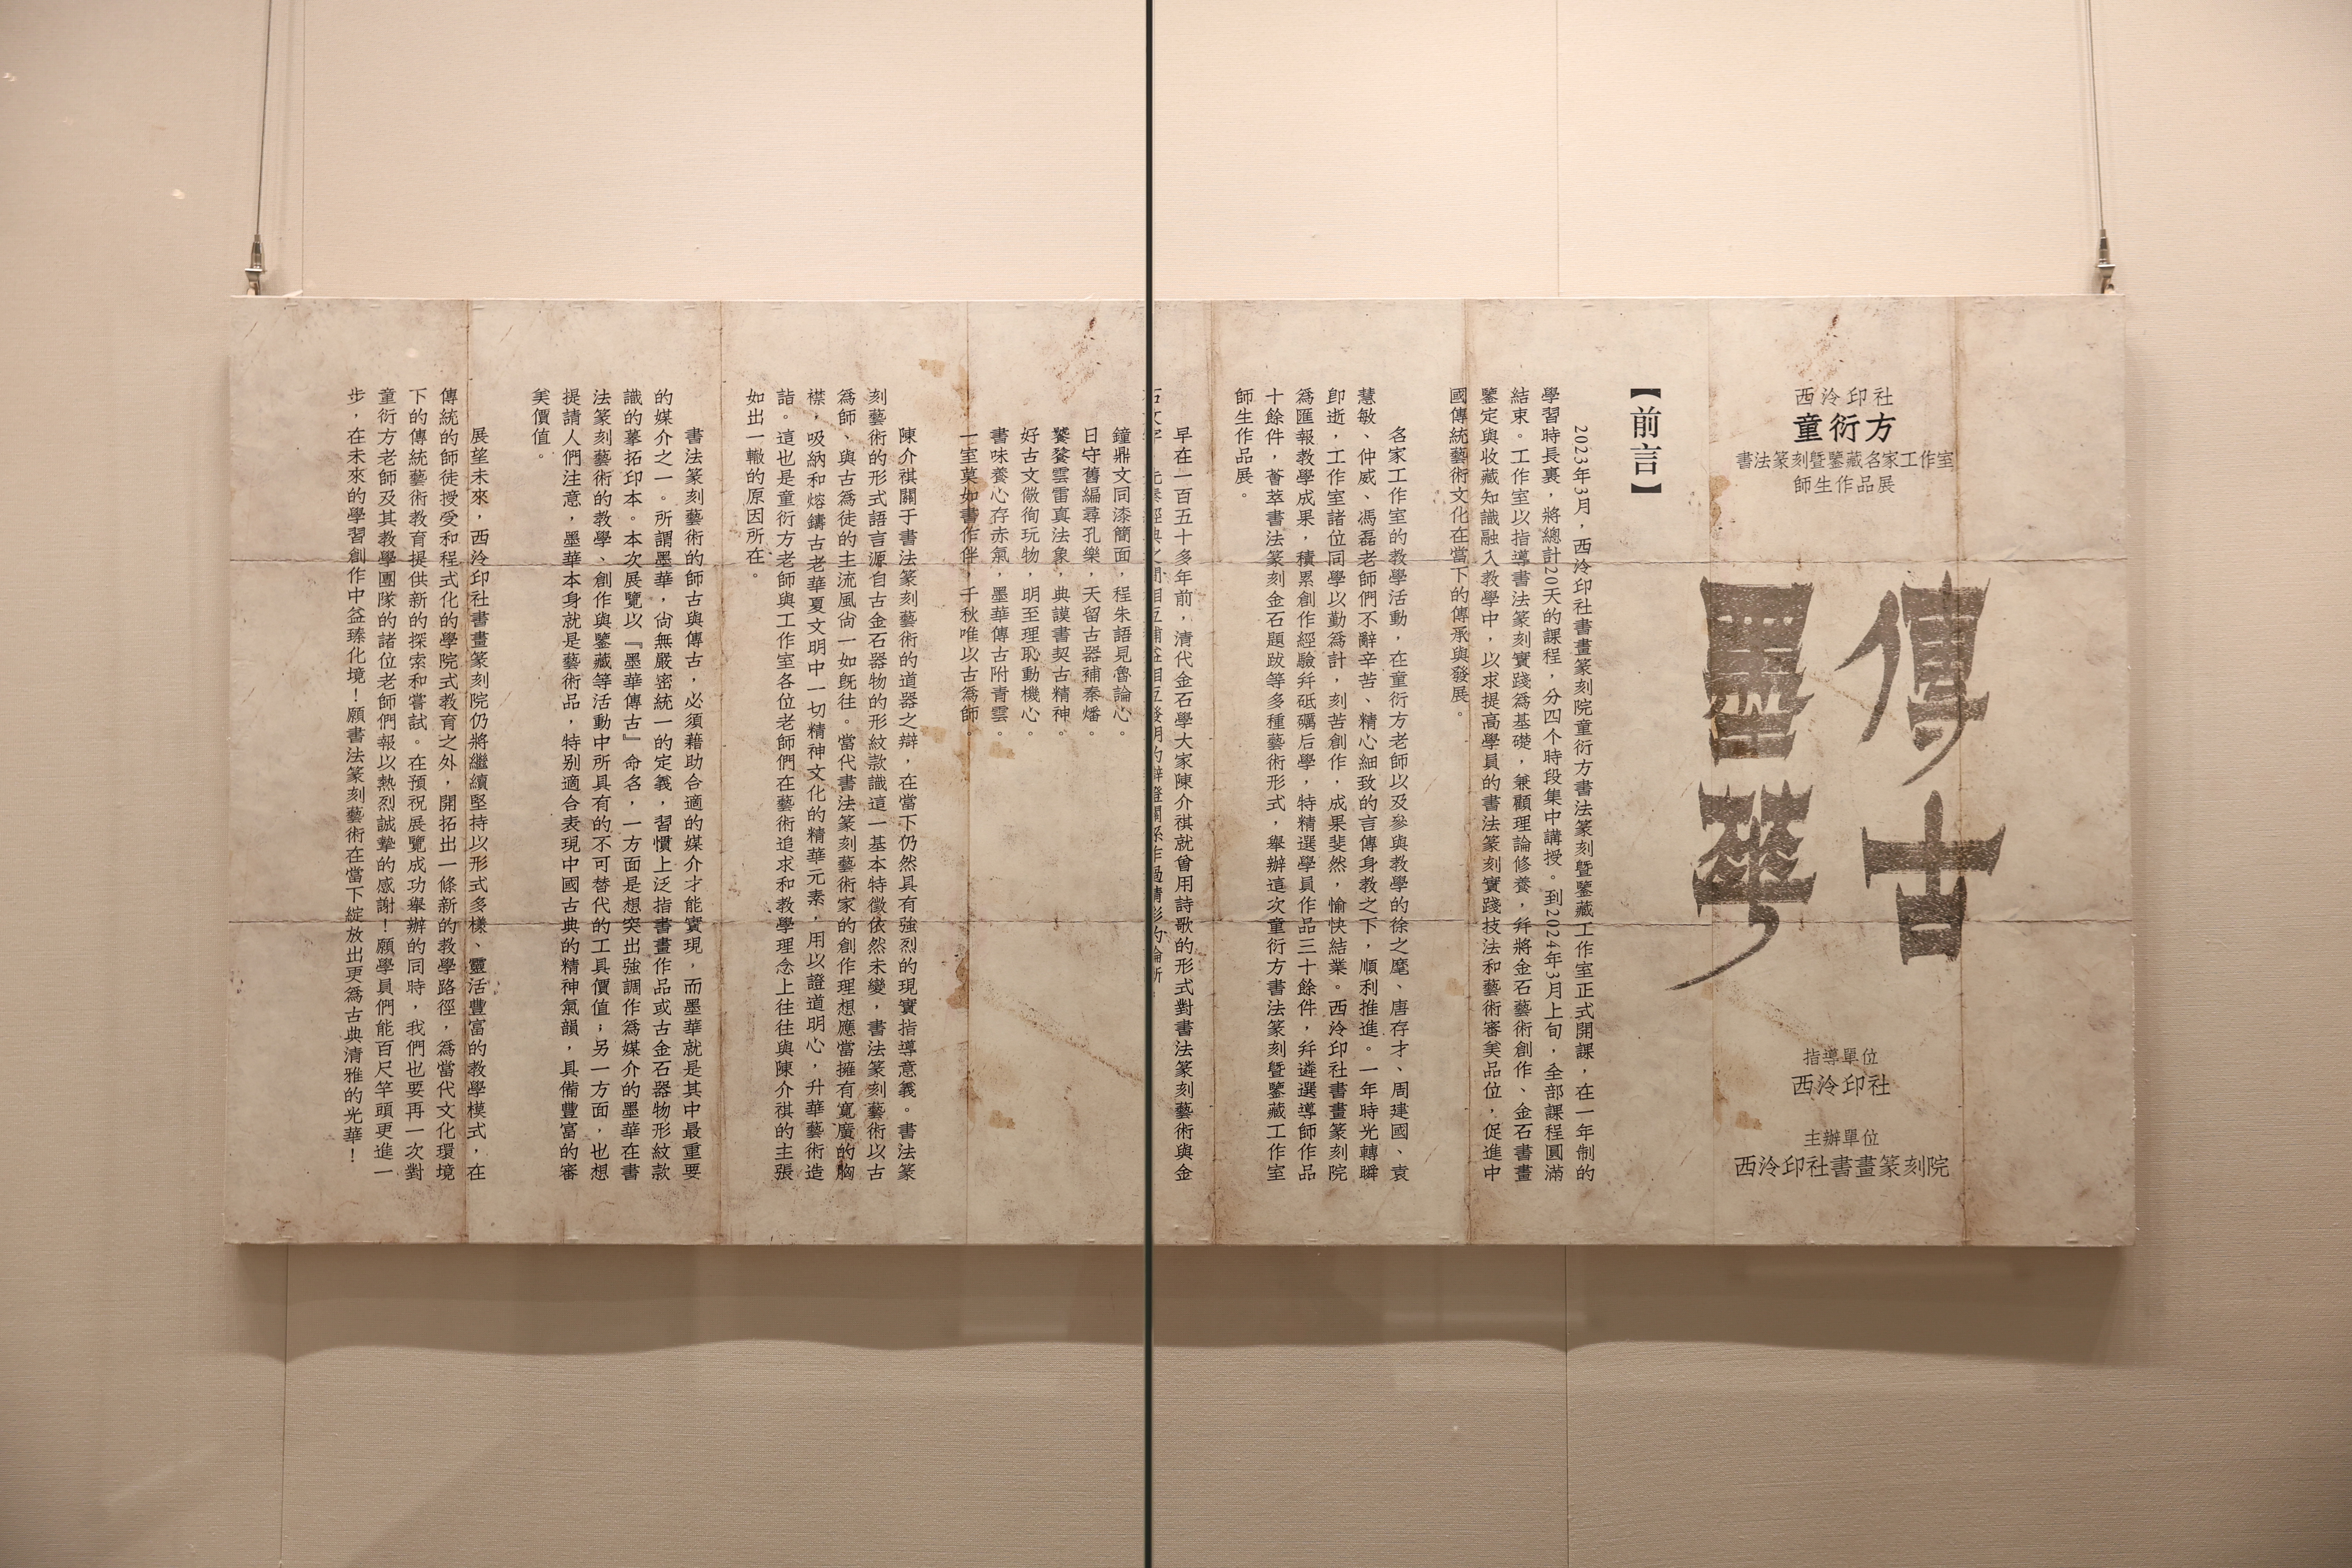 西泠印社
童衍方
書法篆刻暨鑒藏名家工作室
師生作品展
墨華
傳古
指導單位
西泠印社
主辦單位
西泠印社書畫篆刻院
【前言】
2023年3月，西泠印社書畫篆刻院童衍方書法篆刻暨鑒藏工作室正式開課，在一年制的
學習時長裏，將總計20天的課程，分四个時段集中講授。到2024年3月上旬，全部課程圓滿
結束。工作室以指導書法篆刻實踐爲基礎，兼顧理論修養，幷將金石藝術創作、金石書畫
鑒定與收藏知識融入教學中，以求提高學員的書法篆刻實踐技法和藝術審美品位，促進中
國傳統藝術文化在當下的傳承與發展。
各家工作室的教學活動，在童衍方老師以及參與教學的徐之麾、唐存才、周建國、袁
慧敏、仲威、馮磊老師們不辭辛苦、精心細致的言傳身教之下，順利推進。一年時光轉瞬
卽逝，工作室諸位同學以勤爲計，刻苦創作，成果斐然，愉快結業。西泠印社書畫篆刻院
爲匯報教學成果，積累創作經驗幷砥礪后學，特精選學員作品三十餘件，幷遴選導師作品
十餘件，薈萃書法篆刻金石題跋等多種藝術形式，舉辦這次童衍方書法篆刻暨鑒藏工作室
師生作品展。
早在一百五十多年前，清代金石學大家陳介祺就曾用詩歌的形式對書法篆刻藝術與金
鐘鼎文同漆簡面，程朱語見魯論心。
日守舊編尋孔樂，天留古器補秦燔。
饕餮雲雷真法象，典謨書契古精神。
好古文徽徇玩物，明至理恥動機心。
書味養心存赤氣，墨華傳古附青雲。
一室莫如書作伴，千秋唯以古爲師。
陳介祺關于書法篆刻藝術的道器之辯，在當下仍然具有強烈的現實指導意義。書法篆
刻藝術的形式語言源自古金石器物的形紋款識這一基本特徵依然未變，書法篆刻藝術以古
爲師、與古爲徒的主流風尙一如旣往。當代書法篆刻藝術家的創作理想應當擁有寬廣的胸
襟，吸納和熔鑄古老華夏文明中一切精神文化的精華元素，用以證道明心，升華藝術造
詣。這也是童衍方老師與工作室各位老師們在藝術追求和教學理念上往往與陳介祺的主張
如出一轍的原因所在。
書法篆刻藝術的師古與傳古，必須藉助合適的媒介才能實現，而墨華就是其中最重要
的媒介之一。所謂墨華，尙無嚴密統一的定義，習慣上泛指書畫作品或古金石器物形紋款
識的摹拓印本。本次展覽以『墨華傳古』命名，一方面是想突出強調作爲媒介的墨華在書
法篆刻藝術的教學、創作與鑒藏等活動中所具有的不可替代的工具價值；另一方面，也想
提請人們注意，墨華本身就是藝術品，特別適合表現中國古典的精神氣韻，具備豐富的審
美價值。
展望未來，西泠印社書畫篆刻院仍將繼續堅持以形式多樣、靈活豐富的教學模式，在
傳統的師徒授受和程式化的學院式教育之外，開拓出一條新的教學路徑，爲當代文化環境
下的傳統藝術教育提供新的探索和嘗試。在預祝展覽成功舉辦的同時，我們也要再一次對
童衍方老師及其教學團隊的諸位老師們報以熱烈誠摯的感謝！願學員們能百尺竿頭更進一
步，在未來的學習創作中益臻化境！願書法篆刻藝術在當下綻放出更爲古典清雅的光華！